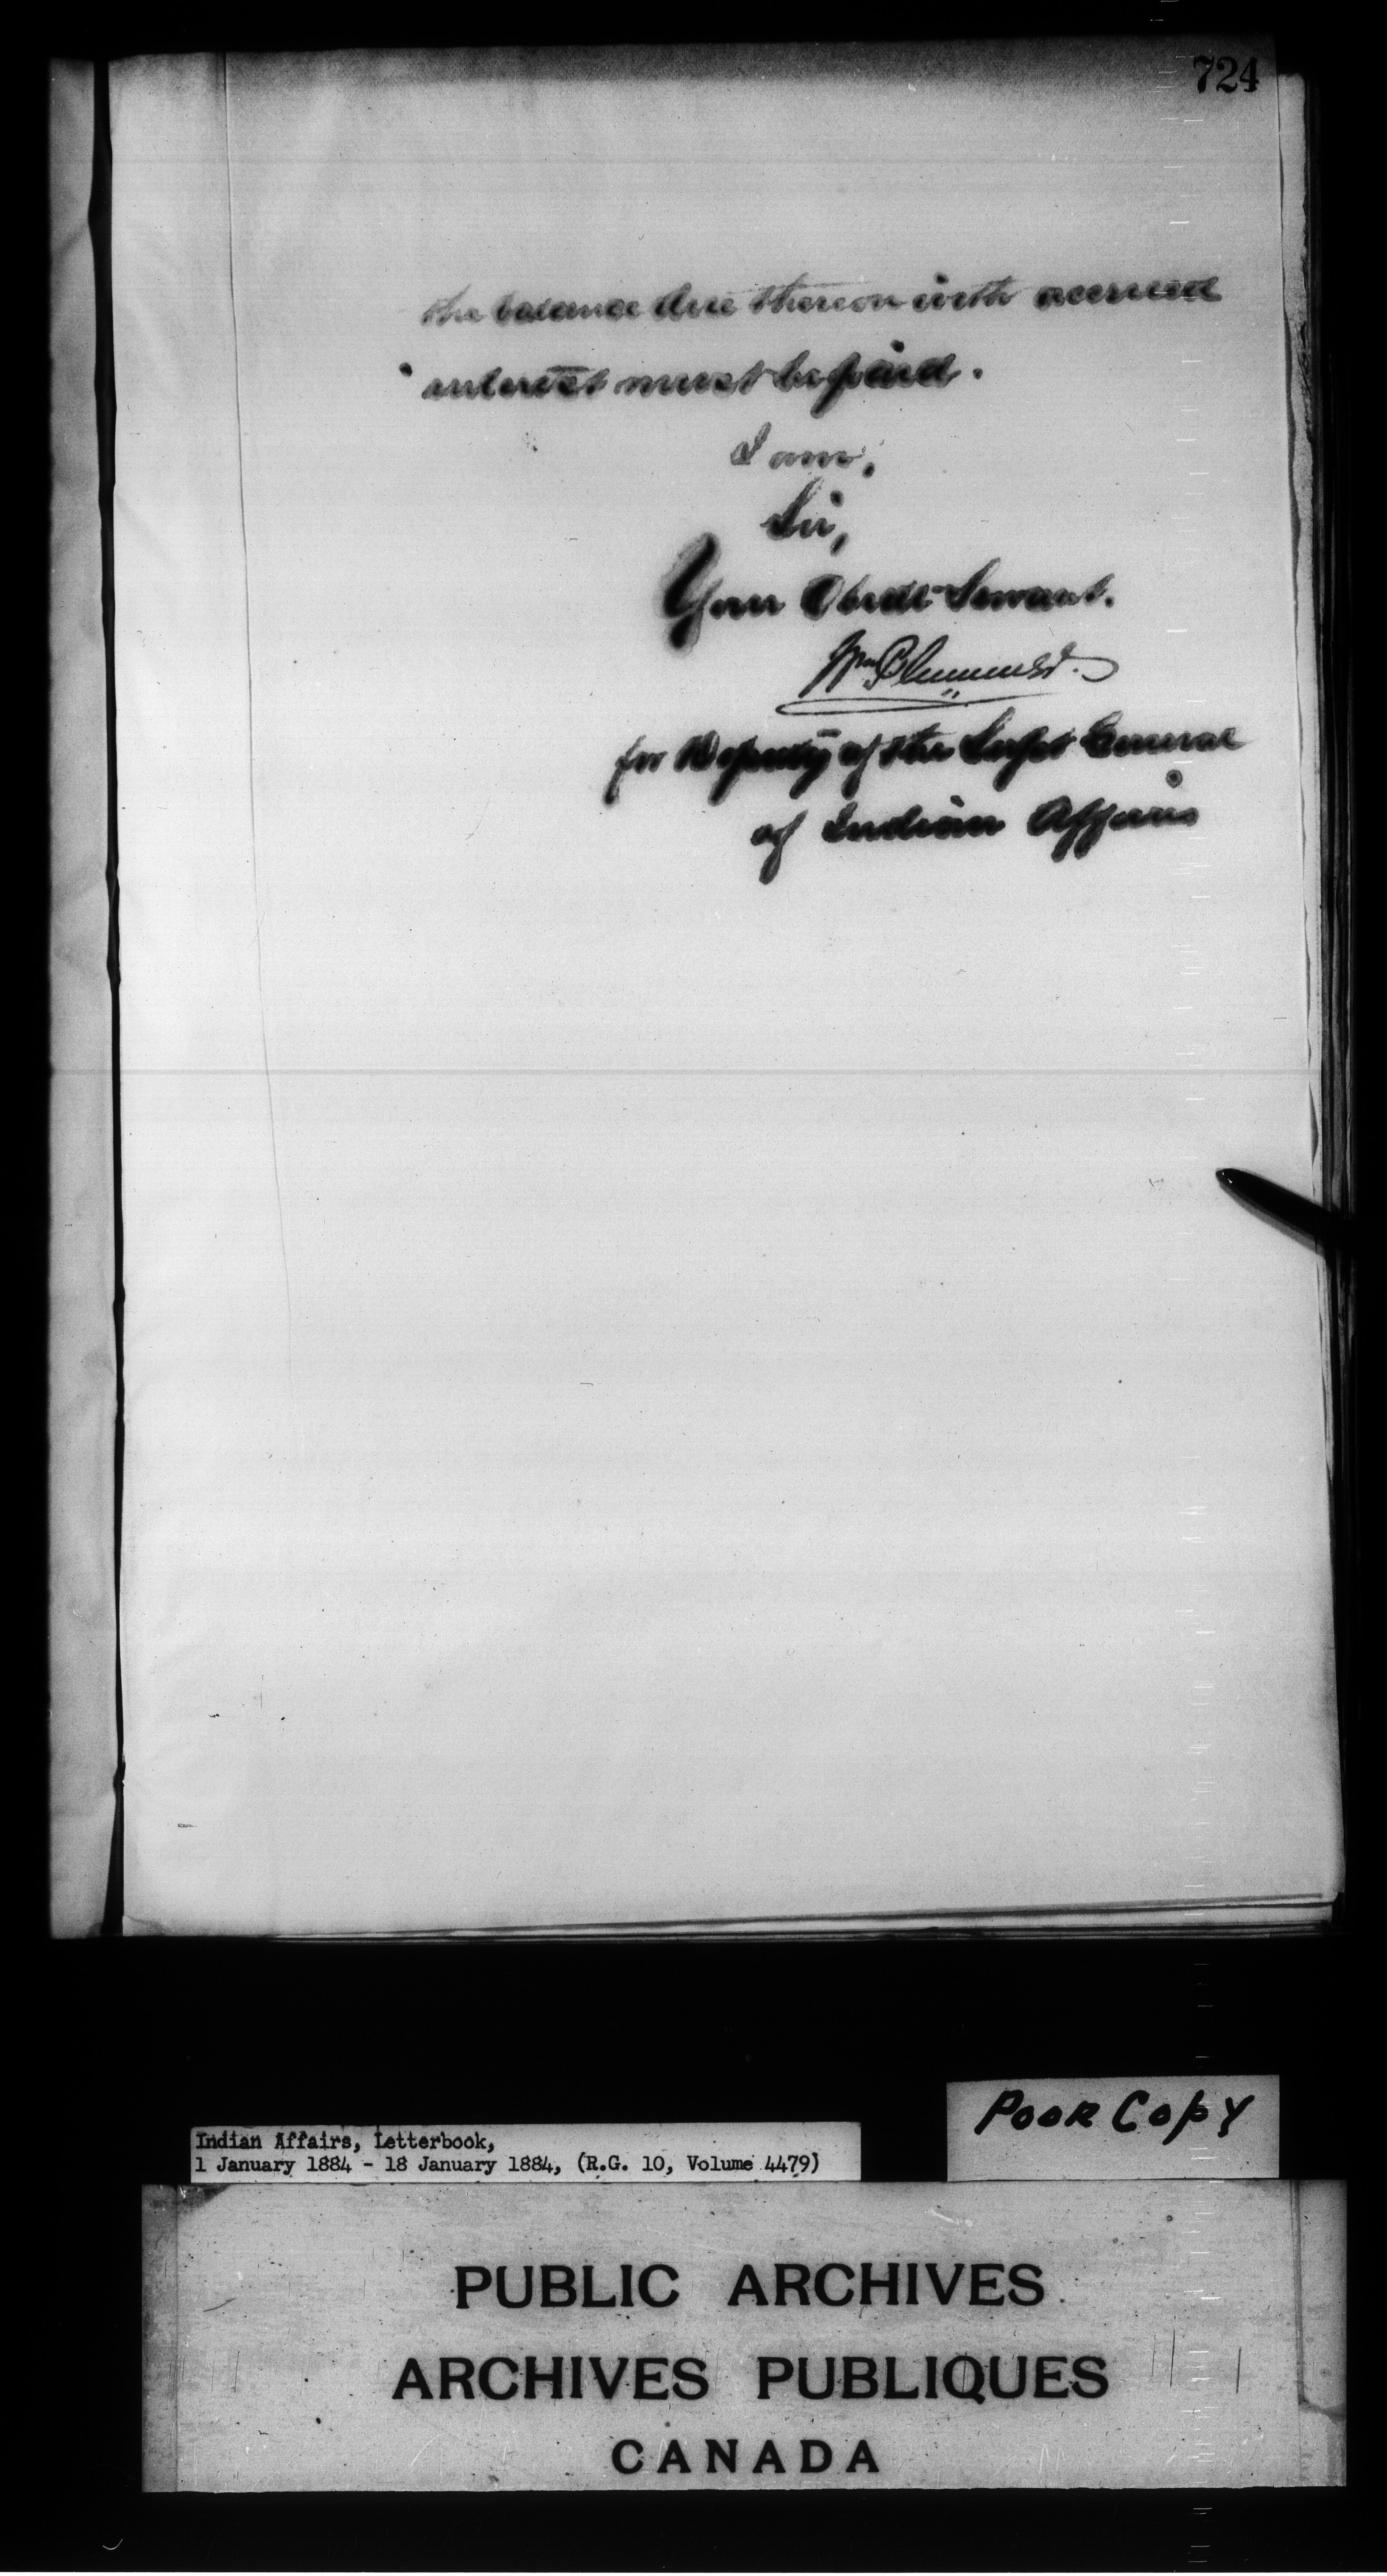 724
the balance due thereon with accrued
interest must be paid.
I am,
Sir,
Your Obedt Servant.
Wm Plummer
for Deputy of the Supt General
of Indian Affairs
Poor Copy
Indian Affairs, Letterbook,
1 January 1884 - 18 January 1884, (R.G. 10, Volume 4479)
PUBLIC ARCHIVES
ARCHIVES PUBLIQUES
CANADA